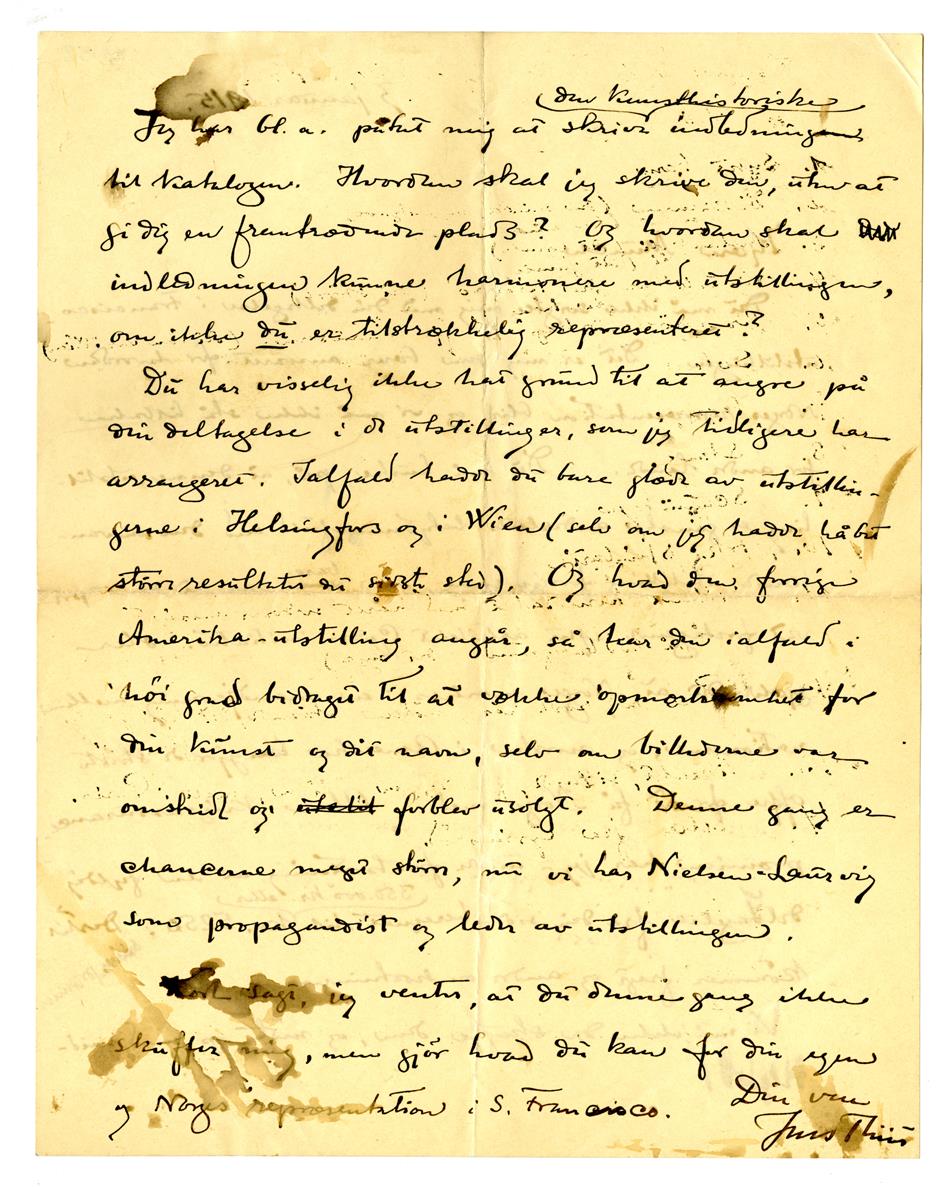 den kunsthistoriske
Jeg har bl. a. påtat mig at skrive indledningen
til katalogen. Hvordan skal jeg skrive den, uten at
gi dig en fremtrædende plads? Og hvordan skal
indledningen kunne harmonere med utstillingen,
om ikke du er tilstrækkelig repræsenteret?
Du har visselig ikke hat grund til at angre på
din deltagelse i de utstillinger, som jeg tidligere har
arrangeret. Ialfald hadde du bare glæde av utstillin-
gerne i Helsingfors og i Wien (selv om jeg hadde håbet
større resultater du sidste sted). Og hvad den forrige
Amerika-utstilling angår, så har den ialfald i
höi grad bidraget til at vække opmerksomhet for
din kunst og dit navn, selv om billederne var
omstridt og forblev usolgt. Denne gang er
chancerne meget större, nu vi har Nielsen-Laurvig
som propagandist og leder av utstillingen.
Kort sagt, jeg venter, at du denne gang ikke
skuffer mig, men gjör hvad du kan for din egen
og Norges repræsentation i S. Francisco. Din ven
Jens Thiis